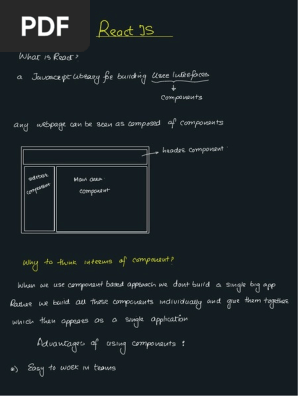 PDF
React JS
What is React?
a Javascript Library for building User Interfaces
Components
any webpage can be seen as composed of components
header component
sidebar
component
Main area
component
Why to think interms of component?
When we use component based approach we dont build a single big app
Rather we build all these components individually and give them together
which then appears as a single application
Advantages of using components :
Easy to work in teams